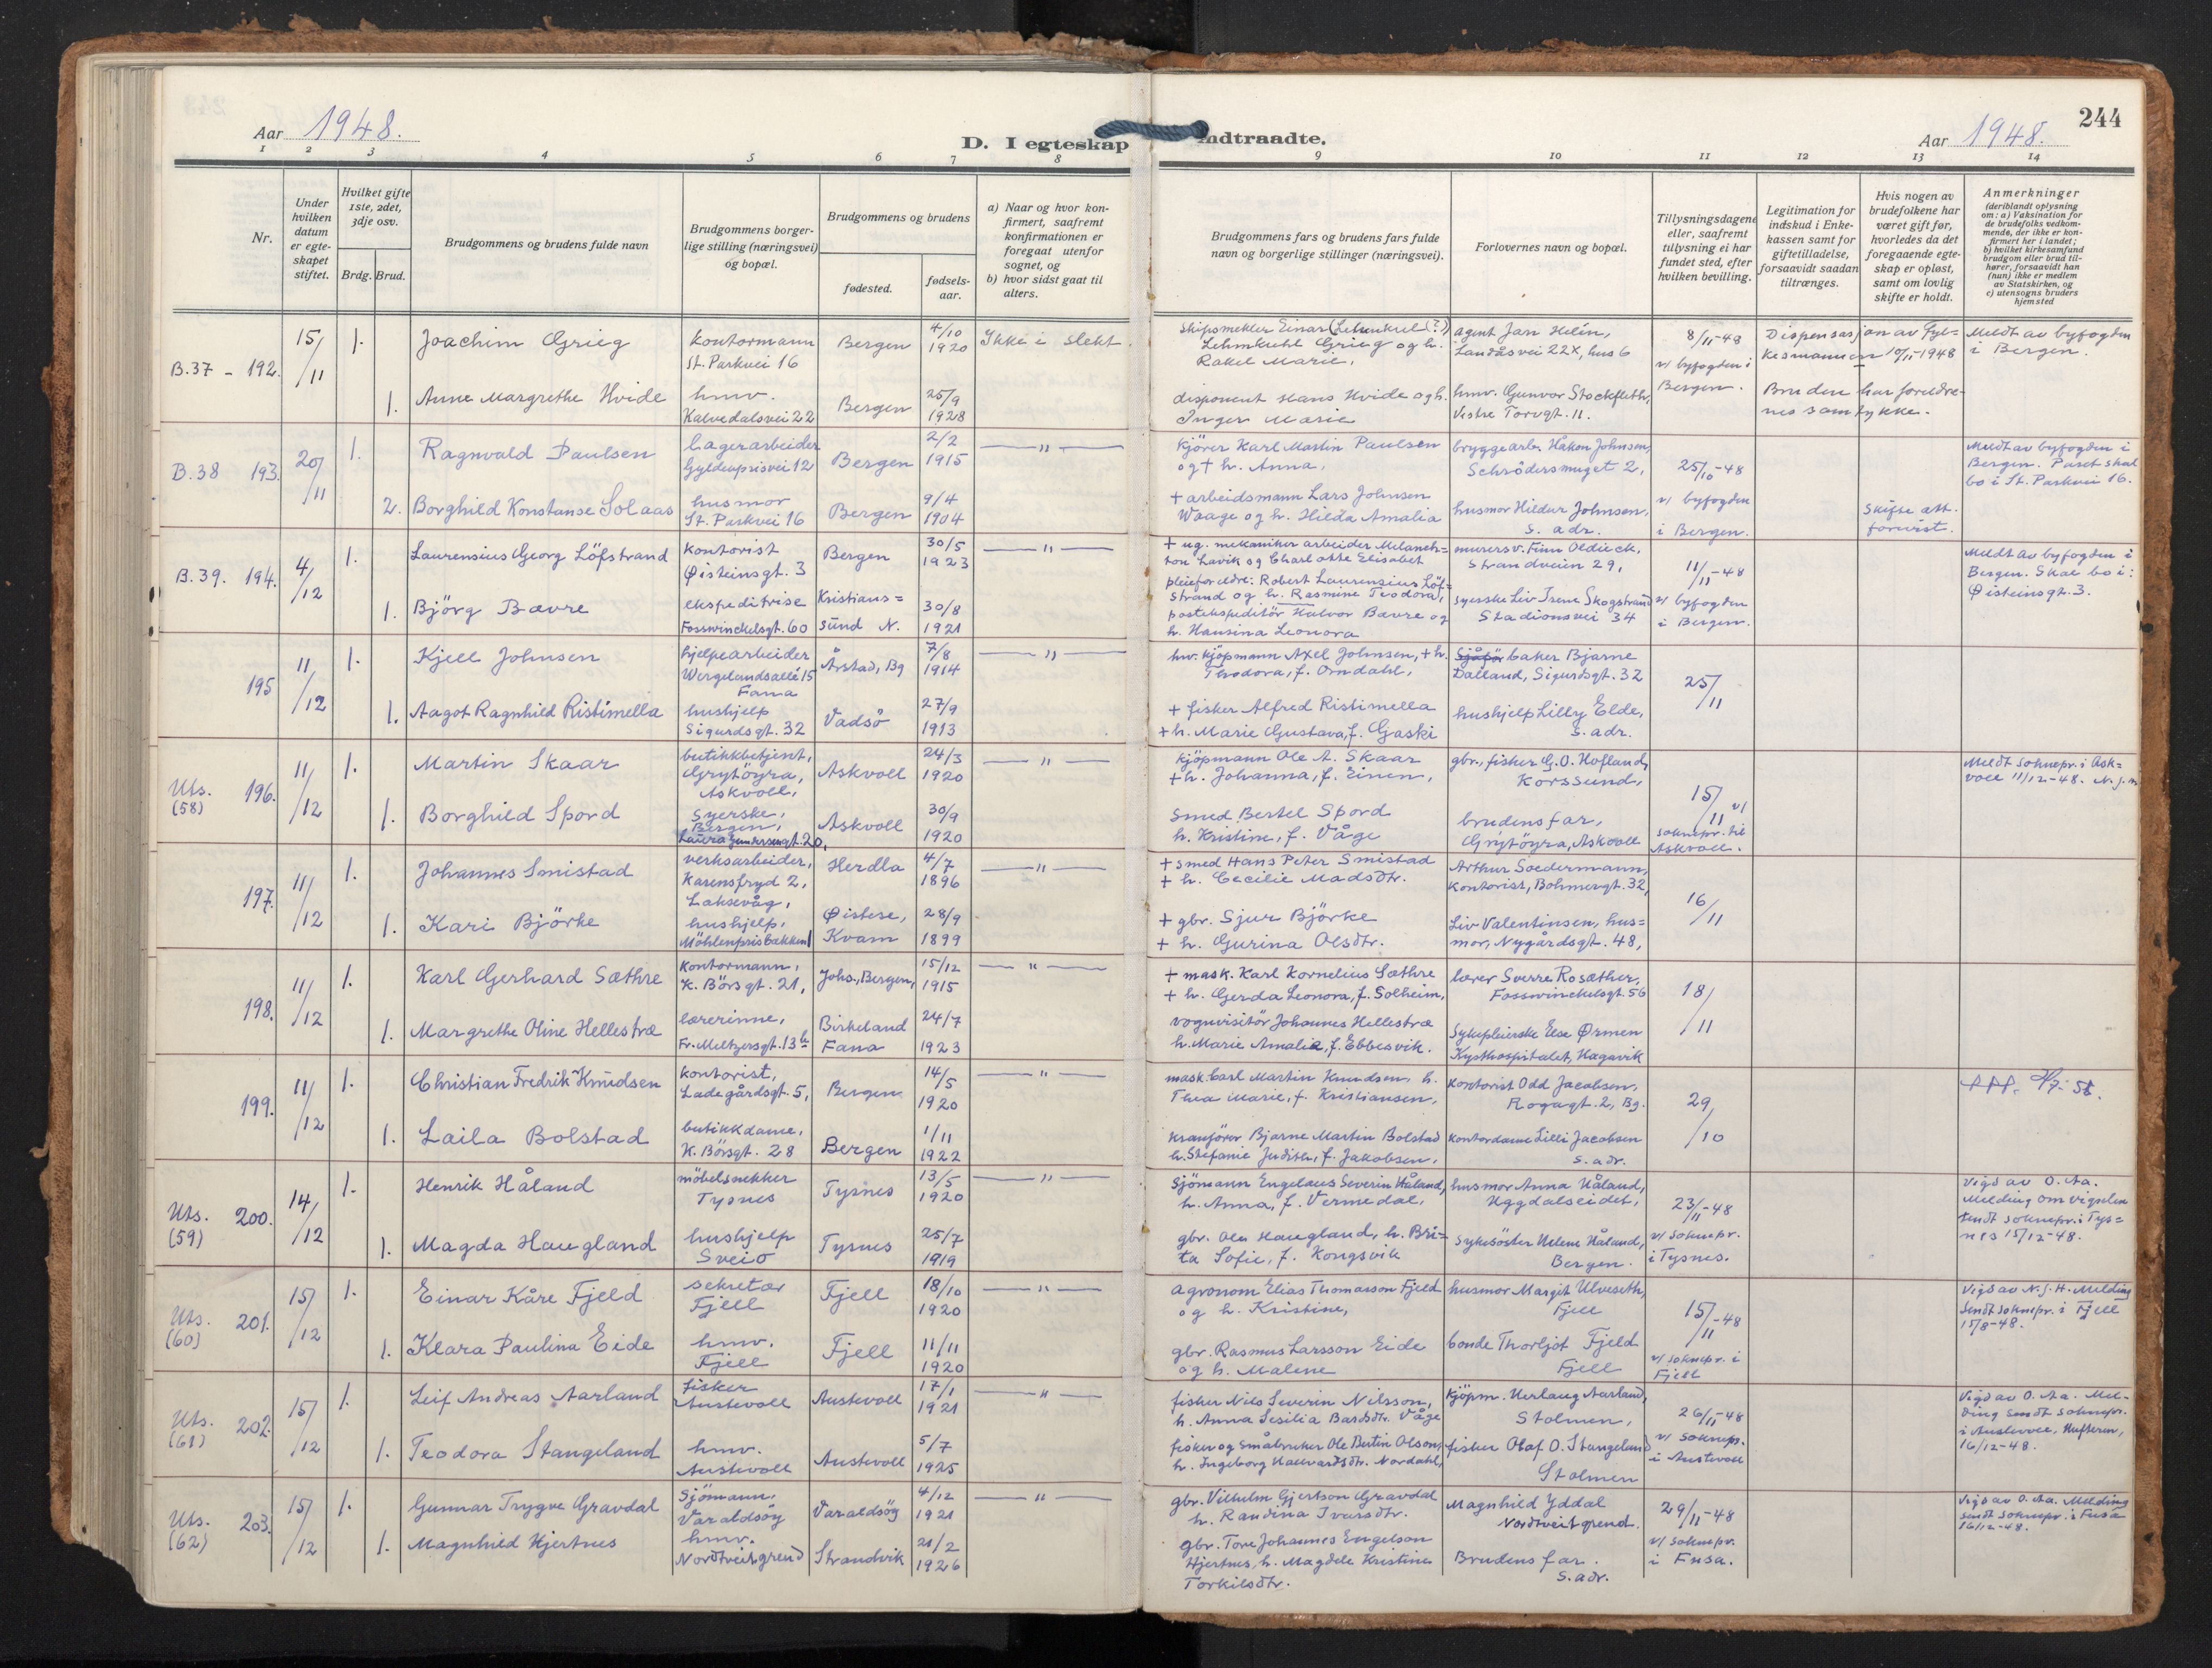 244
Aar 1948.
D. I egteskap indtraadte.
Aar 1948.
1 2 3 4 5 6 7 8 9 10 11 12 13 14
Nr.
Under hvilken datum er egteskapet stiftet.
Hvilket gifte 1ste, 2det, 3dje osv.
Brdg. Brud.
Brudgommens og brudens fulde navn
Brudgommens borgerlige stilling (næringsvei) og bopæl.
Brudgommens og brudens
fødested.
fødselsaar.
a) Naar og hvor konfirmert, saafremt konfirmationen er foregaat utenfor sognet, og
b) hvor sidst gaat til alters.
Brudgommens fars og brudens fars fulde navn og borgerlige stillinger (næringsvei).
Forlovernes navn og bopæl.
Tillysningsdagene eller, saafremt tillysning ei har fundet sted, efter hvilken bevilling.
Legitimation for indskud i Enkekassen samt for giftetilladelse, forsaavidt saadan tiltrænges.
Hvis nogen av brudefolkene har været gift før, hvorledes da det foregaaende egteskap er opløst, samt om lovlig skifte er holdt.
Anmerkninger
(deriblandt oplysning om: a) Vaksination for de brudefolks vedkommende, der ikke er konfirmert her i landet; b) hvilket kirkesamfund brudgom eller brud tilhører, forsaavidt han (hun) ikke er medlem av Statskirken, og c) utensogns bruders hjemsted
B.37 - 192. 15/11 1. Joachim Grieg kontormann St. Parkvei 16 Bergen 4/10 1920 Ikke i slekt.
Skipsmekler Einar (Lehmkuhl (?)) Lehmkuhl Grieg og h. Rakel Marie, agent Jan Helén, Landåsvei 22X, hus 6 8/11-48 v/ byfogden i Bergen. Dispensasjon av Fylkesmannen 10/11-1948 Meldt av byfogden i Bergen.
1. Anne Margrethe Hvide hmv. Kalvedalsvei 22 Bergen 25/9 1928
disponent Hans Hvide og h. Inger Marie hmv. Gunvor Stockfleth, Vestre Torvgt. 11. Bruden har foreldrenes samtykke.
B.38 193. 20/11 1. Ragnvald Paulsen lagerarbeider Gyldenprisvei 12 Bergen 2/2 1915 — " —
kjörer Karl Martin Paulsen og + h. Anna, bryggearb. Håkon Johnsen, Schrödersmuget 2, 25/10-48 v/ byfogden i Bergen. Meldt av byfogden i Bergen. Paret skal bo i St. Parkvei 16.
2. Borghild Konstanse Solaas husmor St. Parkvei 16 Bergen 9/4 1904
+ arbeidsmann Lars Johnsen Waage og h. Hilda Amalia husmor Hildur Johnsen, s. adr. Skifte att. forevist.
B.39. 194. 4/12 1. Laurensius Georg Löfstrand kontorist Øisteinsgt. 3 Bergen 30/5 1923 — " —
+ ug. mekaniker arbeider Melanchton Lavik og Charlotte Elisabet pleieforeldre: Robert Laurensius Löfstrand og h. Rasmine Teodora, murersv. Finn Oldieck, Strandveien 29, 11/11-48 v/ byfogden i Bergen. Meldt av byfogden i Bergen. Skal bo i: Øisteinsgt. 3.
1. Björg Bævre ekspeditrise Fosswinckelsgt. 60 Kristianssund N. 30/8 1921
postekspeditör Halvor Bævre og h. Hansina Leonora syerske Liv Irene Skogstrand Stadionsvei 34
195 11/12 1. Kjell Johnsen hjelpearbeider Wergelandsallé 15 Fana Årstad, Bg 7/8 1914 — " —
hv. kjöpmann Axel Johnsen, + h. Theodora, f. Omdahl, baker Bjarne Dalland, Sigurdsgt. 32 25/11
1. Aagot Ragnhild Ristimella hushjelp Sigurdsgt. 32 Vadsö 27/9 1913
+ fisker Alfred Ristimella + h. Marie Gustava, f. Gjaski hushjelp Lilly Elde, s. adr.
Uts. (58) 196. 11/12 1. Martin Skaar butikkbetjent, Grytöyra, Askvoll, Askvoll 24/3 1920 — " —
kjöpmann Ole A. Skaar + h. Johanna, f. Einen, gbr., fisker G.O. Hofland, Korssund, 15/11 v/ soknepr. til Askvoll. Meldt soknepr. i Askvoll 11/12-48.
1. Borghild Spord syerske, Bergen, Laura Gundersensgt. 20, Askvoll 30/9 1920
smed Bertel Spord h. Kristine, f. Våge brudens far, Grytöyra, Askvoll
197. 11/12 1. Johannes Smistad verksarbeider, Karensfryd 2, Laksevåg, Herdla 4/7 1896 — " —
+ smed Hans Peter Smistad + h. Cecilie Madsdtr. Arthur Soedermann, kontorist, Bohmersgt. 32, 16/11
1. Kari Björke hushjelp, Möhlenprisbakken 1 Øistese, Kvam 28/9 1899
+ gbr. Sjur Björke + h. Gurina Olsdtr. Liv Valentinsen, husmor, Nygårdsgt. 48,
198. 11/12 1. Karl Gerhard Sæthre kontormann, K. Börsgt. 21, Johs., Bergen, 15/12 1915 — " —
+ mask. Karl Kornelius Sæthre + h. Gerda Leonora, f. Solheim, lærer Sverre Rosæther, Fosswinckelsgt. 56 18/11
1. Margrethe Oline Hellestræ lærerinne, Fr. Meltzersgt. 13b Birkeland Fana 24/7 1923
vognvisitör Johannes Hellestræ h. Marie Amalie, f. Ebbesvik. Sykepleierske Else Ørmen Kysthospitalet, Hagavik
199. 11/12 1. Christian Fredrik Knudsen kontorist, Ladegårdsgt. 5, Bergen 14/5 1920 — " —
mask. Carl Martin Knudsen, h. Thea Marie, f. Kristiansen, kontorist Odd Jacobsen, Rogagt. 2, Bg. 29/10
1. Laila Bolstad butikkdame, K. Börsgt. 28 Bergen 1/11 1922
kranförer Bjarne Martin Bolstad h. Stefanie Judith, f. Jakobsen, kontordame Lilli Jacobsen s. adr.
Uts. (59) 200. 14/12 1. Henrik Håland möbelsnekker Tysnes Tysnes 13/5 1920 — " —
Sjömann Engelaus Severin Håland, h. Anna, f. Vermedal, husmor Anna Håland, Uggdalseidet, 23/11-48 v/ soknepr. i Tysnes. Vigd av O. Aa. Melding om vigselen sendt soknepr. i Tysnes 15/12-48.
1. Magda Haugland hushjelp Sveio Tysnes 25/7 1919
gbr. Ole Haugland, h. Brita Sofie, f. Kongsvik Sykesöster Helene Håland, Bergen.
Uts. (60) 201. 15/12 1. Einar Kåre Fjeld sekretær Fjell Fjell 18/10 1920 — " —
agronom Elias Thomasson Fjeld og h. Kristine, husmor Margit Ulveseth, Fjell 15/11-48 v/ soknepr. i Fjell Vigd av N.J.H. Melding sendt soknepr. i Fjell
1. Klara Paulina Eide hmv. Fjell Fjell 11/11 1920
gbr. Rasmus Larsson Eide og h. Malene bonde Thorljot Fjeld Fjell
Uts. (61) 202. 15/12 1. Leif Andreas Aarland fisker Austevoll Austevoll 17/1 1921 — " —
fisker Nils Severin Nilsson, h. Anna Sesilia Bardsdtr. Våge kjöpm. Herlaug Aarland, Stolmen, 26/11-48 v/ soknepr. i Austevoll Vigd av O. Aa. Melding sendt soknepr. i Austevoll, Hufteren, 16/12-48.
1. Teodora Stangeland hmv. Austevoll Austevoll 5/7 1925
fisker og småbruker Ole Bertin Olson, h. Ingeborg Hallvardsdtr. Nordahl, fisker Olaf O. Stangeland Stolmen
Uts. (62) 203. 15/12 1. Gunnar Trygve Gravdal Sjömann, Varaldsöy Varaldsöy 4/12 1921 — " —
gbr. Vilhelm Gjertson Gravdal h. Randina Ivarsdtr. Magnhild Yddal Nordtveitgrend. 29/11-48 v/ soknepr. i Fusa. Vigd av O. Aa. Melding sendt soknepr. i Fusa 16/12-48.
1. Magnhild Hjertnes hmv. Nordtveitgrend Strandvik 21/2 1926
gbr. Tore Johannes Engelson Hjertnes, h. Magdele Kristine Torkilsdtr. Brudens far. s. adr.